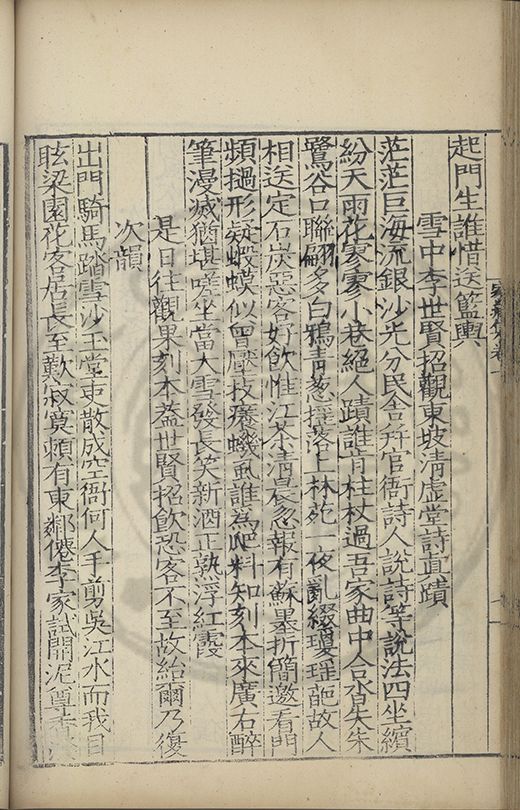 起門生誰惜送籃輿
雪中李世賢招觀東坡清虛堂詩真蹟
茫茫巨海流銀沙光分民舍并官衙詩人說詩等說法四坐繽
紛天雨花寥寥小巷絕人蹟誰肯柱杖過吾家曲中合沓失朱
鷺谷口聯翩多白鴉青葱摧落上林苑一夜亂綴瓊瑤葩故人
相送定石炭惡客好飲惟江茶清晨忽報有蘇墨折簡邀看門
頻撾形疑蝦蟆似曾厭技癢蟣虱誰為爬料知刻本來廣右醉
筆漫滅猶堪嗟坐當大雪發長笑新酒正熟浮紅霞
是日往觀果刻本蓋世賢招飲恐客不至故紿爾乃復
次韻
出門騎馬踏雪沙玉堂吏散成空衙何人手剪吳江水而我目
眩梁園花客居長至歎寂寞頼有東鄰僊李家試開泥尊香